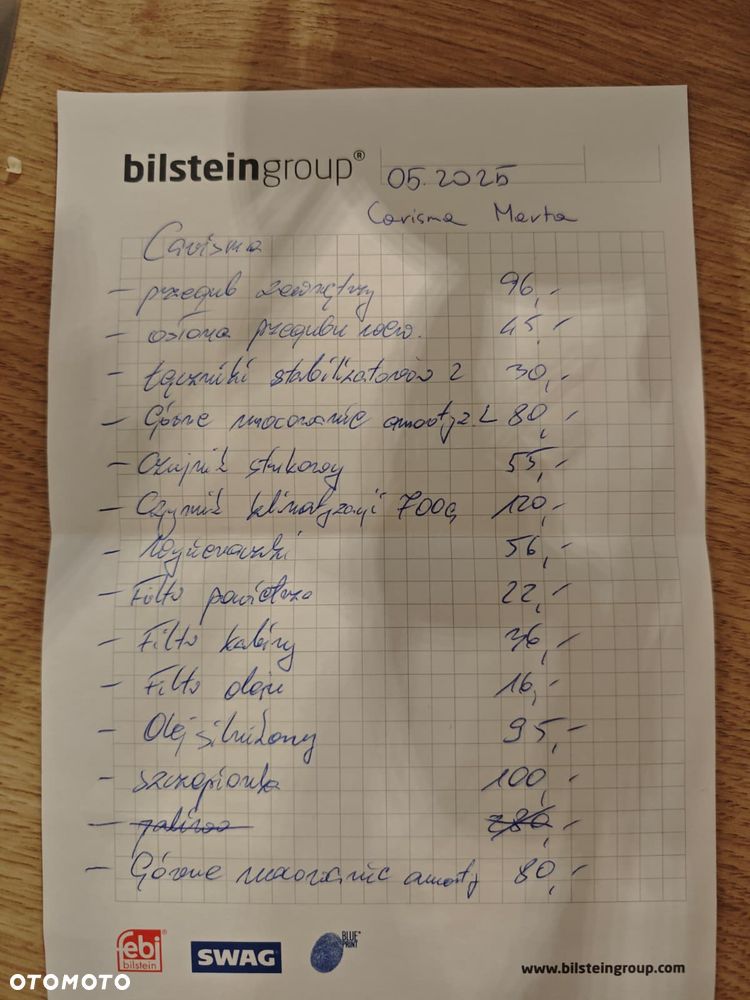 bilsteingroup® 05.2025
Carisma Marta
Carisma
- przegub zewnętrzy 96,-
- osłona przegubu zew. 45,-
- Łączniki stabilizatorów 2 30,-
- Górne mocowanie amortyz. L 80,-
- Czujnik stukowy 55,-
- Czynnik klimatyzacji 700g 120,-
- 56,-
- Filtr powietrza 22,-
- Filtr kabiny 36,-
- Filtr oleju 16,-
- Olej silnikowy 95,-
- 100,-
- paliwo 280,-
- Górne mocowanie amorty 80,-
febi bilstein
SWAG
BLUE PRINT™
www.bilsteingroup.com
OTOMOTO